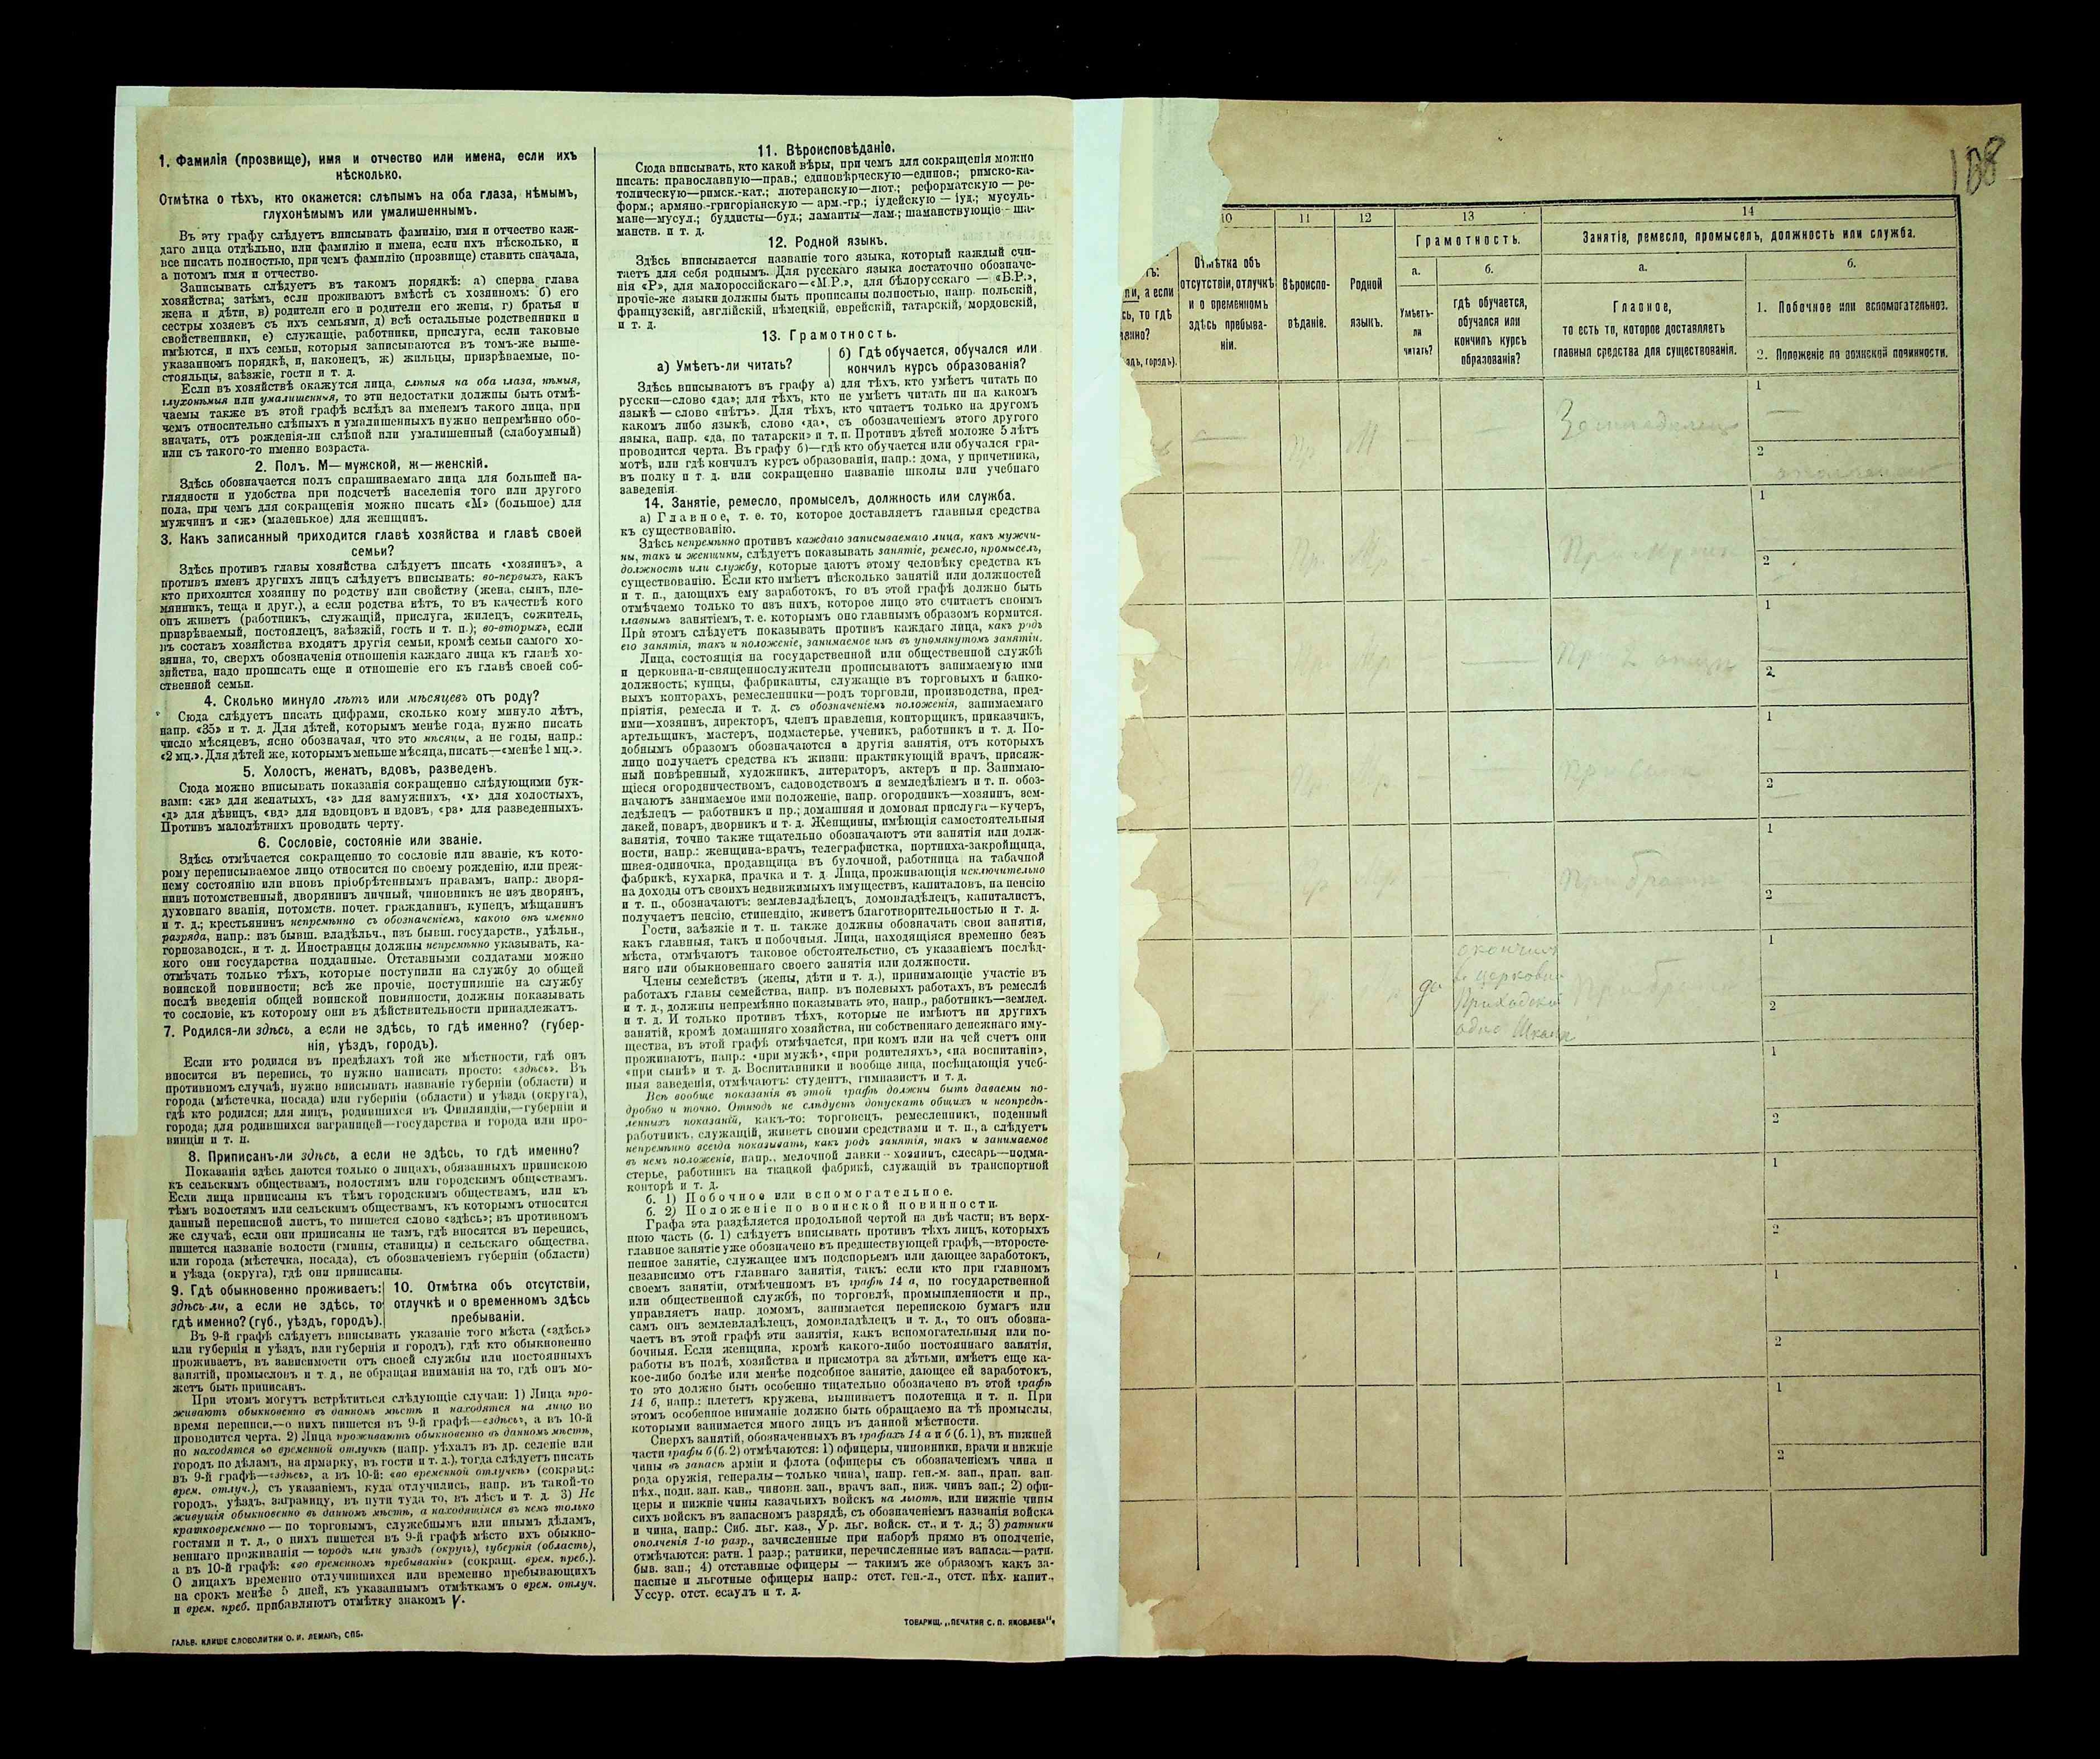 1. Фамилія (прозвище), имя и отчество или имена, если ихъ
нѣсколько.
Отмѣтка о тѣхъ, кто окажется: слѣпымъ на оба глаза, нѣмымъ,
глухонѣмымъ или умалишеннымъ.
Въ эту графу слѣдуетъ вписывать фамилію, имя и отчество каж-
даго лица отдѣльно, или фамилію и имена, если ихъ нѣсколько, и
все писать полностью, при чемъ фамилію (прозвище) ставить сначала,
а потомъ имя и отчество.
Записывать слѣдуетъ въ такомъ порядкѣ: а) сперва глава
хозяйства; затѣмъ, если проживаютъ вмѣстѣ съ хозяиномъ: б) его
жена и дѣти, в) родители его и родители его жены, г) братья и
сестры хозяевъ съ ихъ семьями, д) всѣ остальные родственники и
свойственники, е) служащіе, работники, прислуга, если таковые
имѣются, и ихъ семьи, которыя записываются въ томъ-же выше-
указанномъ порядкѣ, и, наконецъ, ж) жильцы, призрѣваемые, по-
стояльцы, заѣзжіе, гости и т. д.
Если въ хозяйствѣ окажутся лица, слѣпыя на оба глаза, нѣмыя,
глухонѣмыя или умалишенныя, то эти недостатки должны быть отмѣ-
чаемы также въ этой графѣ вслѣдъ за именемъ такого лица, при
чемъ относительно слѣпыхъ и умалишенныхъ нужно непремѣнно обо-
значать, отъ рожденія-ли слѣпой или умалишенный (слабоумный)
или съ такого-то именно возраста.
2. Полъ. М— мужской, ж—женскій.
Здѣсь обозначается полъ спрашиваемаго лица для большей на-
глядности и удобства при подсчетѣ населенія того или другого
пола, при чемъ для сокращенія можно писать «М» (большое) для
мужчинъ и «ж» (маленькое) для женщинъ.
3. Какъ записанный приходится главѣ хозяйства и главѣ своей
семьи?
Здѣсь противъ главы хозяйства слѣдуетъ писать «хозяинъ», а
противъ именъ другихъ лицъ слѣдуетъ вписывать: во-первыхъ, какъ
кто приходится хозяину по родству или свойству (жена, сынъ, пле-
мянникъ, теща и друг.), а если родства нѣтъ, то въ качествѣ кого
онъ живетъ (работникъ, служащій, прислуга, жилецъ, сожитель,
призрѣваемый, постоялецъ, заѣзжій, гость и т. п.); во-вторыхъ, если
въ составъ хозяйства входятъ другія семьи, кромѣ семьи самого хо-
зяина, то, сверхъ обозначенія отношенія каждаго лица къ главѣ хо-
зяйства, надо прописать еще и отношеніе его къ главѣ своей соб-
ственной семьи.
4. Сколько минуло лѣтъ или мѣсяцевъ отъ роду?
Сюда слѣдуетъ писать цифрами, сколько кому минуло лѣтъ,
напр. «35» и т. д. Для дѣтей, которымъ менѣе года, нужно писать
число мѣсяцевъ, ясно обозначая, что это мѣсяцы, а не годы, напр.:
«2 мц.». Для дѣтей же, которымъ меньше мѣсяца, писать—«менѣе 1 мц.».
5. Холостъ, женатъ, вдовъ, разведенъ.
Сюда можно вписывать показанія сокращенно слѣдующими бук-
вами: «ж» для женатыхъ, «з» для замужнихъ, «х» для холостыхъ,
«д» для дѣвицъ, «вд» для вдовцовъ и вдовъ, «рз» для разведенныхъ.
Противъ малолѣтнихъ проводить черту.
6. Сословіе, состояніе или званіе.
Здѣсь отмѣчается сокращенно то сословіе или званіе, къ кото-
рому переписываемое лицо относится по своему рожденію, или преж-
нему состоянію или вновь пріобрѣтеннымъ правамъ, напр.: дворя-
нинъ потомственный, дворянинъ личный, чиновникъ не изъ дворянъ,
духовнаго званія, потомств. почет. гражданинъ, купецъ, мѣщанинъ
и т. д.; крестьянинъ непремѣнно съ обозначеніемъ, какого онъ именно
разряда, напр.: изъ бывш. владѣльч., изъ бывш. государств., удѣльн.,
горнозаводск., и т. д. Иностранцы должны непремѣнно указывать, ка-
кого они государства подданные. Отставными солдатами можно
отмѣчать только тѣхъ, которые поступили на службу до общей
воинской повинности; всѣ же прочіе, поступившіе на службу
послѣ введенія общей воинской повинности, должны показывать
то сословіе, къ которому они въ дѣйствительности принадлежатъ.
7. Родился-ли здѣсь, а если не здѣсь, то гдѣ именно? (губер-
нія, уѣздъ, городъ).
Если кто родился въ предѣлахъ той же мѣстности, гдѣ онъ
вносится въ перепись, то нужно написать просто: «здѣсь». Въ
противномъ случаѣ, нужно вписывать названіе губерніи (области) и
города (мѣстечка, посада) или губерніи (области) и уѣзда (округа),
гдѣ кто родился; для лицъ, родившихся въ Финляндіи,—губерніи и
города; для родившихся заграницей—государства и города или про-
винціи и т. п.
8. Приписанъ-ли здѣсь, а если не здѣсь, то гдѣ именно?
Показанія здѣсь даются только о лицахъ, обязанныхъ припискою
къ сельскимъ обществамъ, волостямъ или городскимъ обществамъ.
Если лица приписаны къ тѣмъ городскимъ обществамъ, или къ
тѣмъ волостямъ или сельскимъ обществамъ, къ которымъ относится
данный переписной листъ, то пишется слово «здѣсь»; въ противномъ
же случаѣ, если они приписаны не тамъ, гдѣ вносятся въ перепись,
пишется названіе волости (гмины, станицы) и сельскаго общества,
или города (мѣстечка, посада), съ обозначеніемъ губерніи (области)
и уѣзда (округа), гдѣ они приписаны.
9. Гдѣ обыкновенно проживаетъ:
здѣсь-ли, а если не здѣсь, то
гдѣ именно? (губ., уѣздъ, городъ).
10. Отмѣтка объ отсутствіи,
отлучкѣ и о временномъ здѣсь
пребываніи.
Въ 9-й графѣ слѣдуетъ вписывать указаніе того мѣста («здѣсь»
или губернія и уѣздъ, или губернія и городъ), гдѣ кто обыкновенно
проживаетъ, въ зависимости отъ своей службы или постоянныхъ
занятій, промысловъ и т. д., не обращая вниманія на то, гдѣ онъ мо-
жетъ быть приписанъ.
При этомъ могутъ встрѣтиться слѣдующіе случаи: 1) Лица про-
живаютъ обыкновенно въ данномъ мѣстѣ и находятся на лицо во
время переписи,—о нихъ пишется въ 9-й графѣ—«здѣсь», а въ 10-й
проводится черта. 2) Лица проживаютъ обыкновенно въ данномъ мѣстѣ,
но находятся во временной отлучкѣ (напр. уѣхалъ въ др. селеніе или
городъ по дѣламъ, на ярмарку, въ гости и т. д.), тогда слѣдуетъ писать
въ 9-й графѣ—«здѣсь», а въ 10-й: «во временной отлучкѣ» (сокращ.:
врем. отлуч.), съ указаніемъ, куда отлучились, напр. въ такой-то
городъ, уѣздъ, заграницу, въ пути туда то, въ лѣсъ и т. д. 3) Не
живущія обыкновенно въ данномъ мѣстѣ, а находящіяся въ немъ только
кратковременно — по торговымъ, служебнымъ или инымъ дѣламъ,
гостями и т. д., о нихъ пишется въ 9-й графѣ мѣсто ихъ обыкно-
веннаго проживанія — городъ или уѣздъ (округъ), губернія (область),
а въ 10-й графѣ: «во временномъ пребываніи» (сокращ. врем. преб.).
О лицахъ временно отлучившихся или временно пребывающихъ
на срокъ менѣе 5 дней, къ указаннымъ отмѣткамъ о врем. отлуч.
и врем. преб. прибавляютъ отмѣтку знакомъ V.
ГАЛЬВ. КЛИШЕ СЛОВОЛИТНИ О. И. ЛЕМАНЪ, СПБ.
11. Вѣроисповѣданіе.
Сюда вписывать, кто какой вѣры, при чемъ для сокращенія можно
писать: православную—прав.; единовѣрческую—единов.; римско-ка-
толическую—римск.-кат.; лютеранскую—лют.; реформатскую — ре-
форм.; армяно-григоріанскую — арм.-гр.; іудейскую — іуд.; мусуль-
мане—мусул.; буддисты—буд.; ламаиты—лам.; шаманствующіе - ша-
манств. и т. д.
12. Родной языкъ.
Здѣсь вписывается названіе того языка, который каждый счи-
таетъ для себя роднымъ. Для русскаго языка достаточно обозначе-
нія «Р», для малороссійскаго—«М.Р.», для бѣлорусскаго — «Б.Р.»,
прочіе-же языки должны быть прописаны полностью, напр. польскій,
французскій, англійскій, нѣмецкій, еврейскій, татарскій, мордовскій,
и т. д.
13. Грамотность.
а) Умѣетъ-ли читать?
б) Гдѣ обучается, обучался или
кончилъ курсъ образованія?
Здѣсь вписываютъ въ графу а) для тѣхъ, кто умѣетъ читать по
русски—слово «да»; для тѣхъ, кто не умѣетъ читать ни на какомъ
языкѣ — слово «нѣтъ». Для тѣхъ, кто читаетъ только на другомъ
какомъ либо языкѣ, слово «да», съ обозначеніемъ этого другого
языка, напр. «да, по татарски» и т. п. Противъ дѣтей моложе 5 лѣтъ
проводится черта. Въ графу б)—гдѣ кто обучается или обучался гра-
мотѣ, или гдѣ кончилъ курсъ образованія, напр.: дома, у причетника,
въ полку и т. д. или сокращенно названіе школы или учебнаго
заведенія.
14. Занятіе, ремесло, промыселъ, должность или служба.
а) Главное, т. е. то, которое доставляетъ главныя средства
къ существованію.
Здѣсь непремѣнно противъ каждаго записываемаго лица, какъ мужчи-
ны, такъ и женщины, слѣдуетъ показывать занятіе, ремесло, промыселъ,
должность или службу, которые даютъ этому человѣку средства къ
существованію. Если кто имѣетъ нѣсколько занятій или должностей
и т. п., дающихъ ему заработокъ, то въ этой графѣ должно быть
отмѣчаемо только то изъ нихъ, которое лицо это считаетъ своимъ
главнымъ занятіемъ, т. е. которымъ оно главнымъ образомъ кормится.
При этомъ слѣдуетъ показывать противъ каждаго лица, какъ родъ
его занятія, такъ и положеніе, занимаемое имъ въ упомянутомъ занятіи.
Лица, состоящія на государственной или общественной службѣ
и церковна-и-священнослужители прописываютъ занимаемую ими
должность; купцы, фабриканты, служащіе въ торговыхъ и банко-
выхъ конторахъ, ремесленники—родъ торговли, производства, пред-
пріятія, ремесла и т. д. съ обозначеніемъ положенія, занимаемаго
ими—хозяинъ, директоръ, членъ правленія, конторщикъ, приказчикъ,
артельщикъ, мастеръ, подмастерье, ученикъ, работникъ и т. д. По-
добнымъ образомъ обозначаются и другія занятія, отъ которыхъ
лицо получаетъ средства къ жизни: практикующій врачъ, присяж-
ный повѣренный, художникъ, литераторъ, актеръ и пр. Занимаю-
щіеся огородничествомъ, садоводствомъ и земледѣліемъ и т. п. обоз-
начаютъ занимаемое ими положеніе, напр. огородникъ—хозяинъ, зем-
ледѣлецъ — работникъ и пр.; домашняя и домовая прислуга—кучеръ,
лакей, поваръ, дворникъ и т. д. Женщины, имѣющія самостоятельныя
занятія, точно также тщательно обозначаютъ эти занятія или долж-
ности, напр.: женщина-врачъ, телеграфистка, портниха-закройщица,
швея-одиночка, продавщица въ булочной, работница на табачной
фабрикѣ, кухарка, прачка и т. д. Лица, проживающія исключительно
на доходы отъ своихъ недвижимыхъ имуществъ, капиталовъ, на пенсію
и т. п., обозначаютъ: землевладѣлецъ, домовладѣлецъ, капиталистъ,
получаетъ пенсію, стипендію, живетъ благотворительностью и т. д.
Гости, заѣзжіе и т. п. также должны обозначать свои занятія,
какъ главныя, такъ и побочныя. Лица, находящіяся временно безъ
мѣста, отмѣчаютъ таковое обстоятельство, съ указаніемъ послѣд-
няго или обыкновеннаго своего занятія или должности.
Члены семействъ (жены, дѣти и т. д.), принимающіе участіе въ
работахъ главы семейства, напр. въ полевыхъ работахъ, въ ремеслѣ
и т. д., должны непремѣнно показывать это, напр., работникъ—землед.
и т. д. И только противъ тѣхъ, которые не имѣютъ ни другихъ
занятій, кромѣ домашняго хозяйства, ни собственнаго денежнаго иму-
щества, въ этой графѣ отмѣчается, при комъ или на чей счетъ они
проживаютъ, напр.: «при мужѣ», «при родителяхъ», «на воспитаніи»,
«при сынѣ» и т. д. Воспитанники и вообще лица, посѣщающія учеб-
ныя заведенія, отмѣчаютъ: студентъ, гимназистъ и т. д.
Всѣ вообще показанія въ этой графѣ должны быть даваемы по-
дробно и точно. Отнюдь не слѣдуетъ допускать общихъ и неопредѣ-
ленныхъ показаній, какъ-то: торговецъ, ремесленникъ, поденный
работникъ, служащій, живетъ своими средствами и т. п., а слѣдуетъ
непремѣнно всегда показывать, какъ родъ занятія, такъ и занимаемое
въ немъ положеніе, напр., мелочной лавки - хозяинъ, слесарь—подма-
стерье, работникъ на ткацкой фабрикѣ, служащій въ транспортной
конторѣ и т. д.
б. 1) Побочное или вспомогательное.
б. 2) Положеніе по воинской повинности.
Графа эта раздѣляется продольной чертой на двѣ части; въ верх-
нюю часть (б. 1) слѣдуетъ вписывать противъ тѣхъ лицъ, которыхъ
главное занятіе уже обозначено въ предшествующей графѣ,—второсте-
пенное занятіе, служащее имъ подспорьемъ или дающее заработокъ,
независимо отъ главнаго занятія, такъ: если кто при главномъ
своемъ занятіи, отмѣченномъ въ графѣ 14 а, по государственной
или общественной службѣ, по торговлѣ, промышленности и пр.,
управляетъ напр. домомъ, занимается перепискою бумагъ или
самъ онъ землевладѣлецъ, домовладѣлецъ и т. д., то онъ обозна-
чаетъ въ этой графѣ эти занятія, какъ вспомогательныя или по-
бочныя. Если женщина, кромѣ какого-либо постояннаго занятія,
работы въ полѣ, хозяйства и присмотра за дѣтьми, имѣетъ еще ка-
кое-либо болѣе или менѣе подсобное занятіе, дающее ей заработокъ,
то это должно быть особенно тщательно обозначено въ этой графѣ
14 б, напр.: плететъ кружева, вышиваетъ полотенца и т. п. При
этомъ особенное вниманіе должно быть обращаемо на тѣ промыслы,
которыми занимается много лицъ въ данной мѣстности.
Сверхъ занятій, обозначенныхъ въ графахъ 14 а и б (б. 1), въ нижней
части графы б (б. 2) отмѣчаются: 1) офицеры, чиновники, врачи и нижніе
чины въ запасѣ арміи и флота (офицеры съ обозначеніемъ чина и
рода оружія, генералы—только чина), напр. ген.-м. зап., прап. зап.
пѣх., подп. зап. кав., чиновн. зап., врачъ зап., ниж. чинъ зап.; 2) офи-
церы и нижніе чины казачьихъ войскъ на льготѣ, или нижніе чины
сихъ войскъ въ запасномъ разрядѣ, съ обозначеніемъ названія войска
и чина, напр.: Сиб. льг. каз., Ур. льг. войск. ст., и т. д.; 3) ратники
ополченія 1-го разр., зачисленные при наборѣ прямо въ ополченіе,
отмѣчаются: ратн. 1 разр.; ратники, перечисленные изъ запаса—ратн.
быв. зап.; 4) отставные офицеры — такимъ же образомъ какъ за-
пасные и льготные офицеры напр.: отст. ген.-л., отст. пѣх. капит.,
Уссур. отст. есаулъ и т. д.
ТОВАРИЩ. „ПЕЧАТНЯ С. П. ЯКОВЛЕВА“.
108
10
11
12
13
14
Грамотность.
Занятіе, ремесло, промыселъ, должность или служба.
а.
б.
а.
б.
Отмѣтка объ
отсутствіи, отлучкѣ
и о временномъ
здѣсь пребыва-
ніи.
Вѣроиспо-
вѣданіе.
Родной
языкъ.
Умѣетъ-
ли
читать?
гдѣ обучается,
обучался или
кончилъ курсъ
образованія?
Главное,
то есть то, которое доставляетъ
главныя средства для существованія.
1. Побочное или вспомогательное.
2. Положеніе по воинской повинности.
1
2
1
2
1
2
1
2
1
2
да
1
2
1
2
1
2
1
2
1
2